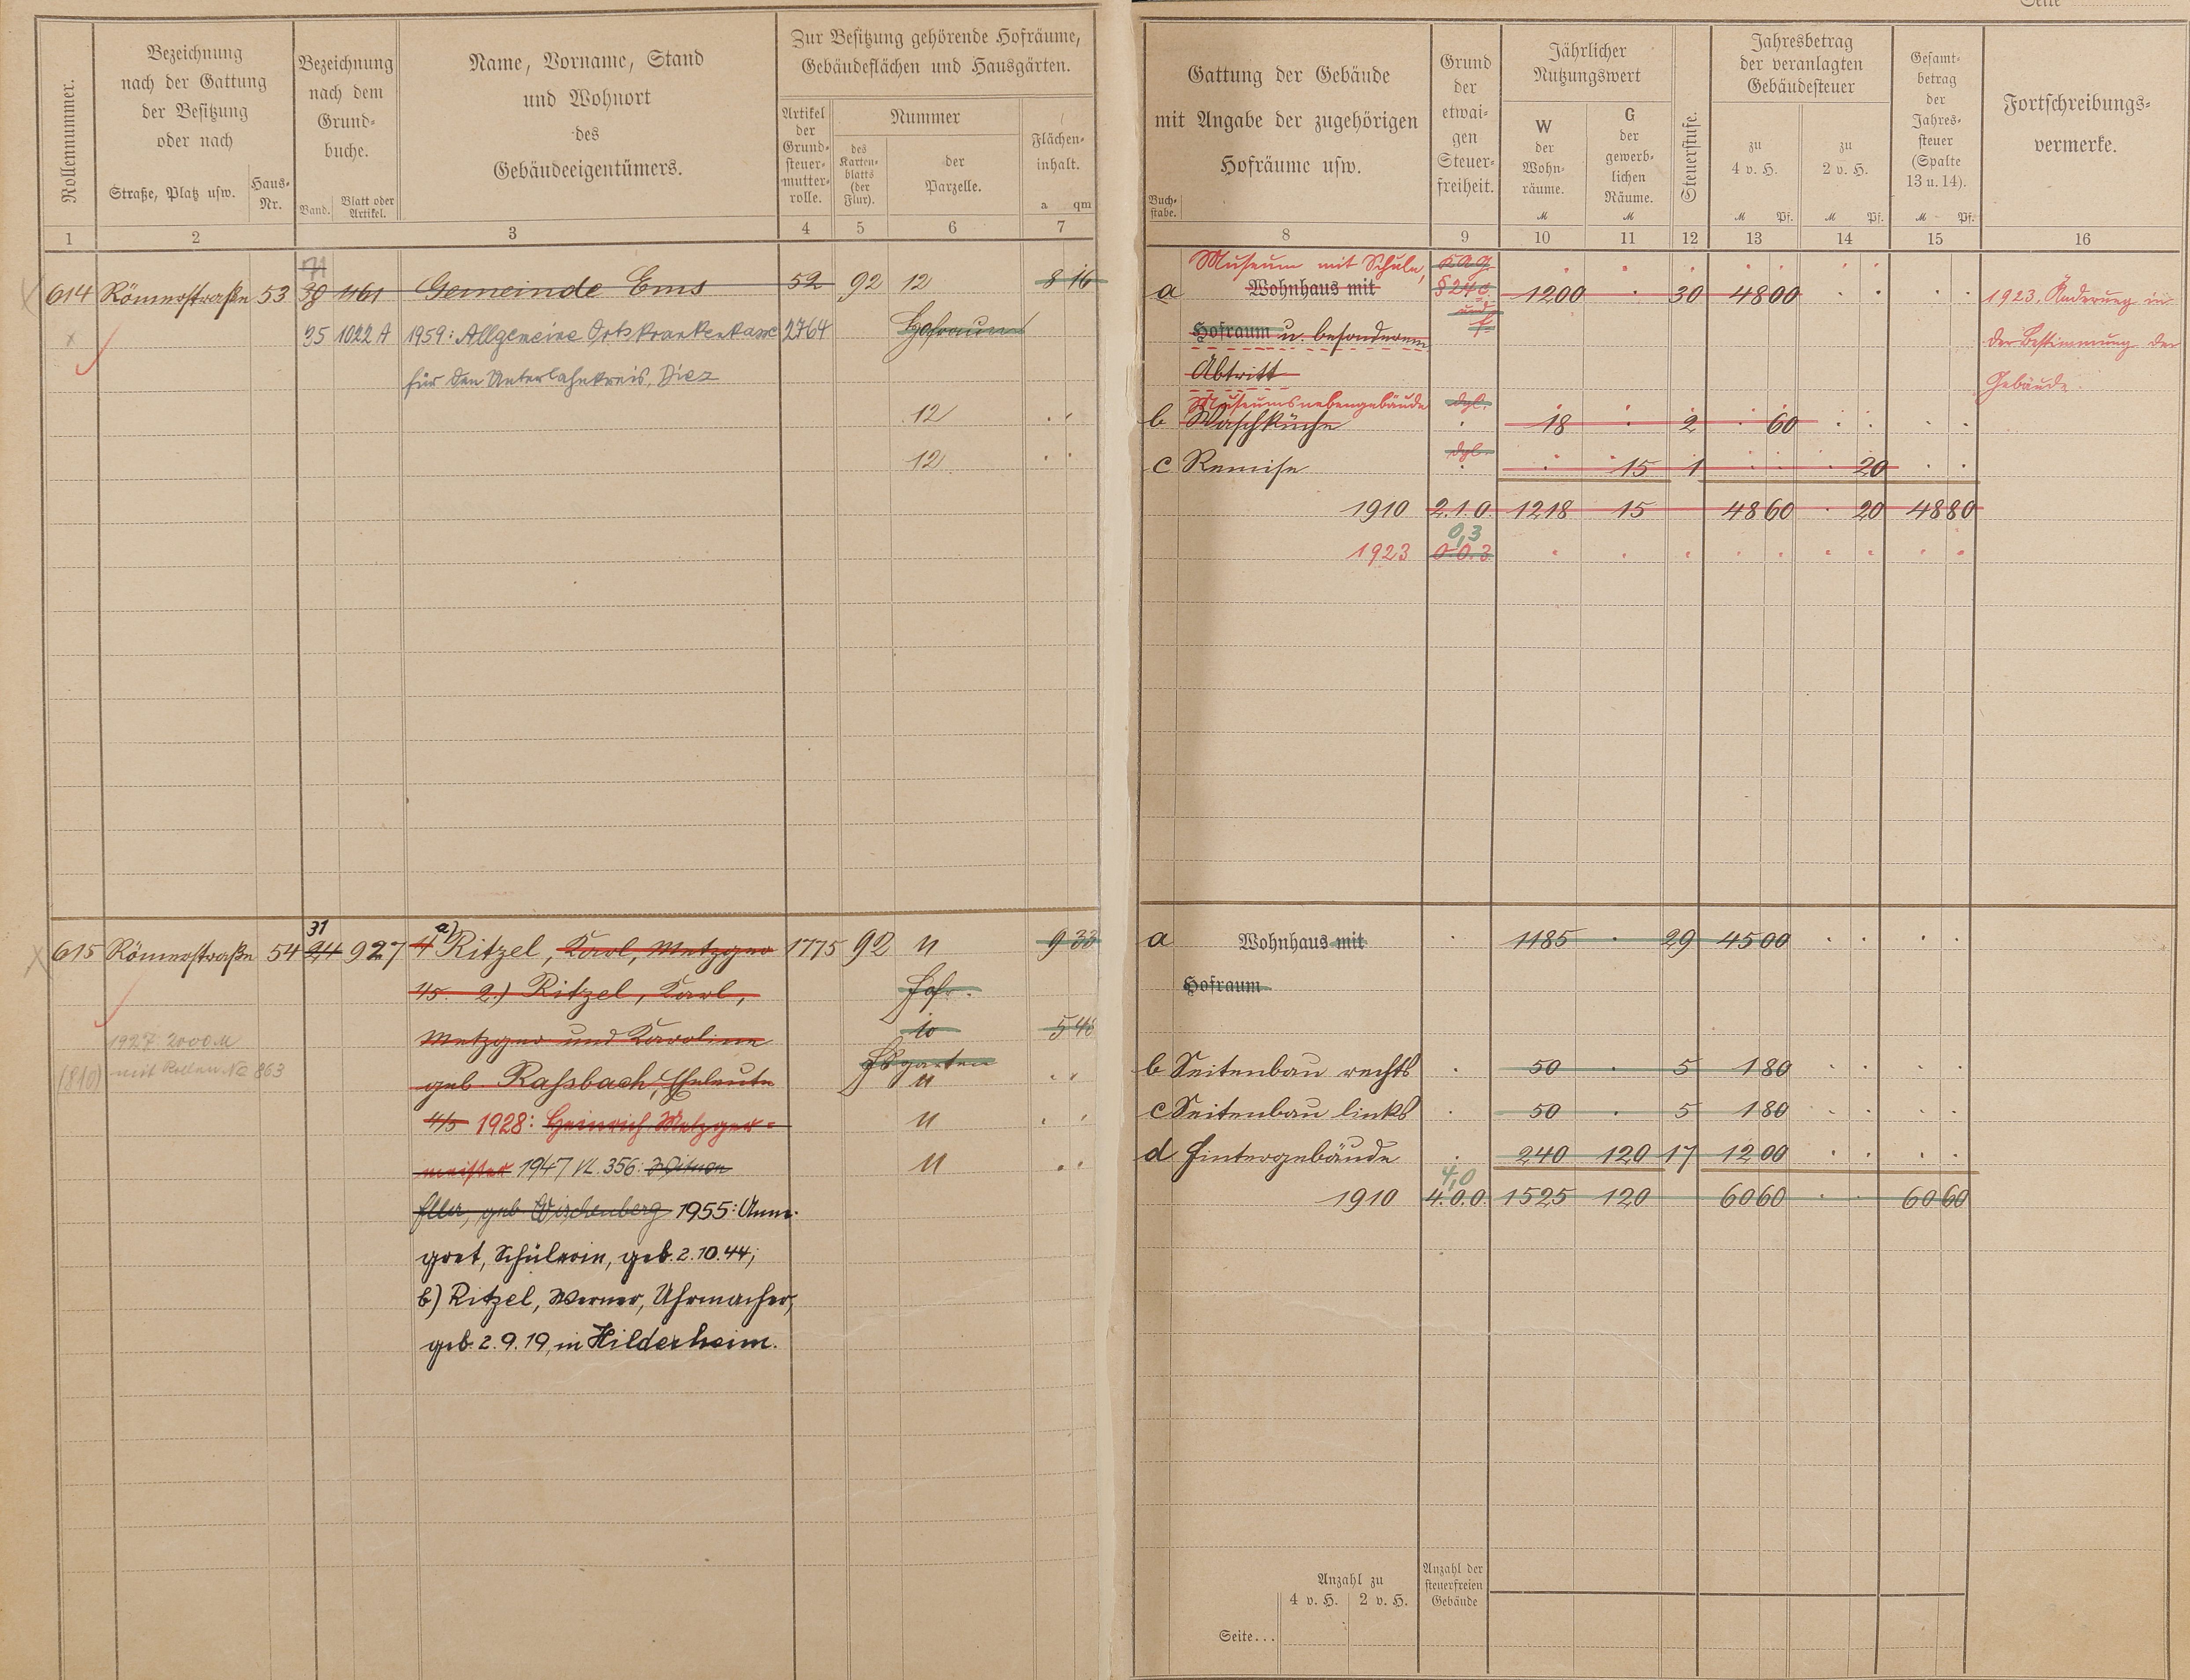 Seite
Rollennummer.
Bezeichnung
nach der Gattung
der Besitzung
oder nach
Straße, Platz usw.
Haus-
Nr.
Bezeichnung
nach dem
Grund-
buche.
Band.
Blatt oder
Artikel.
Name, Vorname, Stand
und Wohnort
des
Gebäudeeigentümers.
Zur Besitzung gehörende Hofräume,
Gebäudeflächen und Hausgärten.
Artikel
der
Grund-
steuer-
mutter-
rolle.
Nummer
des
Karten-
blatts
(der
Flur).
der
Parzelle.
Flächen-
inhalt.
a qm
1 2 3 4 5 6 7
Gattung der Gebäude
mit Angabe der zugehörigen
Hofräume usw.
Buch-
stabe.
Grund
der
etwai-
gen
Steuer-
freiheit.
Jährlicher
Nutzungswert
W
der
Wohn-
räume.
M
G
der
gewerb-
lichen
Räume.
M
Steuerstufe.
Jahresbetrag
der veranlagten
Gebäudesteuer
zu
4 v. H.
M Pf.
zu
2 v. H.
M Pf.
Gesamt-
betrag
der
Jahres-
steuer
(Spalte
13 u. 14).
M Pf.
Fortschreibungs-
vermerke.
8 9 10 11 12 13 14 15 16
614 Römerstraße 53 1161 Gemeinde Ems 52 92 12 8 16
35 1022 A 1959: Allgemeine Ortskrankenkasse 2764 Hofraum
für den Unterlahnkreis, Diez
12
12
Museum mit Schule, K.A.G.
a Wohnhaus mit § 24 c. 1200 30 48 00 1923. Änderung in
und
Hofraum u. besonderem f der Bestimmung der
Abtritt Gebäude.
Museumsnebengebäude dgl.
b Waschküche 18 2 60
dgl.
c Remise 15 1 20
1910 2.1.0. 1218 15 48 60 20 48 80
0,3
1923 0.0.3.
31
615 Römerstraße 54 24 927 a) Ritzel, Karl, Metzger 1775 92 11 9 33
45. 2.) Ritzel, Karl, Hofr.
Metzger und Karoline 10 5 40
geb. Raßbach, Eheleute Hsgarten
11
4/5 1928: Heinrich Metzger- 11
meister 1947 VL. 356: 11
geb. 1955: Anne-
gret, Schülerin, geb. 2.10.44;
b) Ritzel, Werner, Uhrmacher,
geb. 2.9.19, in Hildesheim.
1927: 2000 M
(810) mit Rollen No 863
a Wohnhaus mit 1185 29 45 00
Hofraum
b Seitenbau rechts 50 5 1 80
c Seitenbau links 50 5 1 80
d Hintergebäude 240 120 17 12 00
4,0
1910 4.0.0. 1525 120 60 60 60 60
Anzahl zu
4 v. H. 2 v. H.
Anzahl der
steuerfreien
Gebäude
Seite...